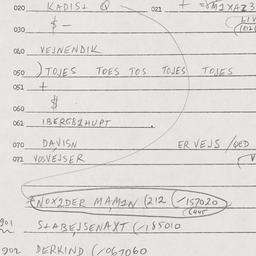 020 KADIST Q 021
030 $ -
040 VEJNENDIK
050 ) TOJES TOES TOS TOJES TOJES
051 +
$
060
061 IBERG81HUPT .
070 DAVISN ER VEJS /GED
071 VOSVEJSER
NOX2DER MAMIN (212 (/157020
901 STABEJSENAXT (/185010
902 DERKIND (/067060